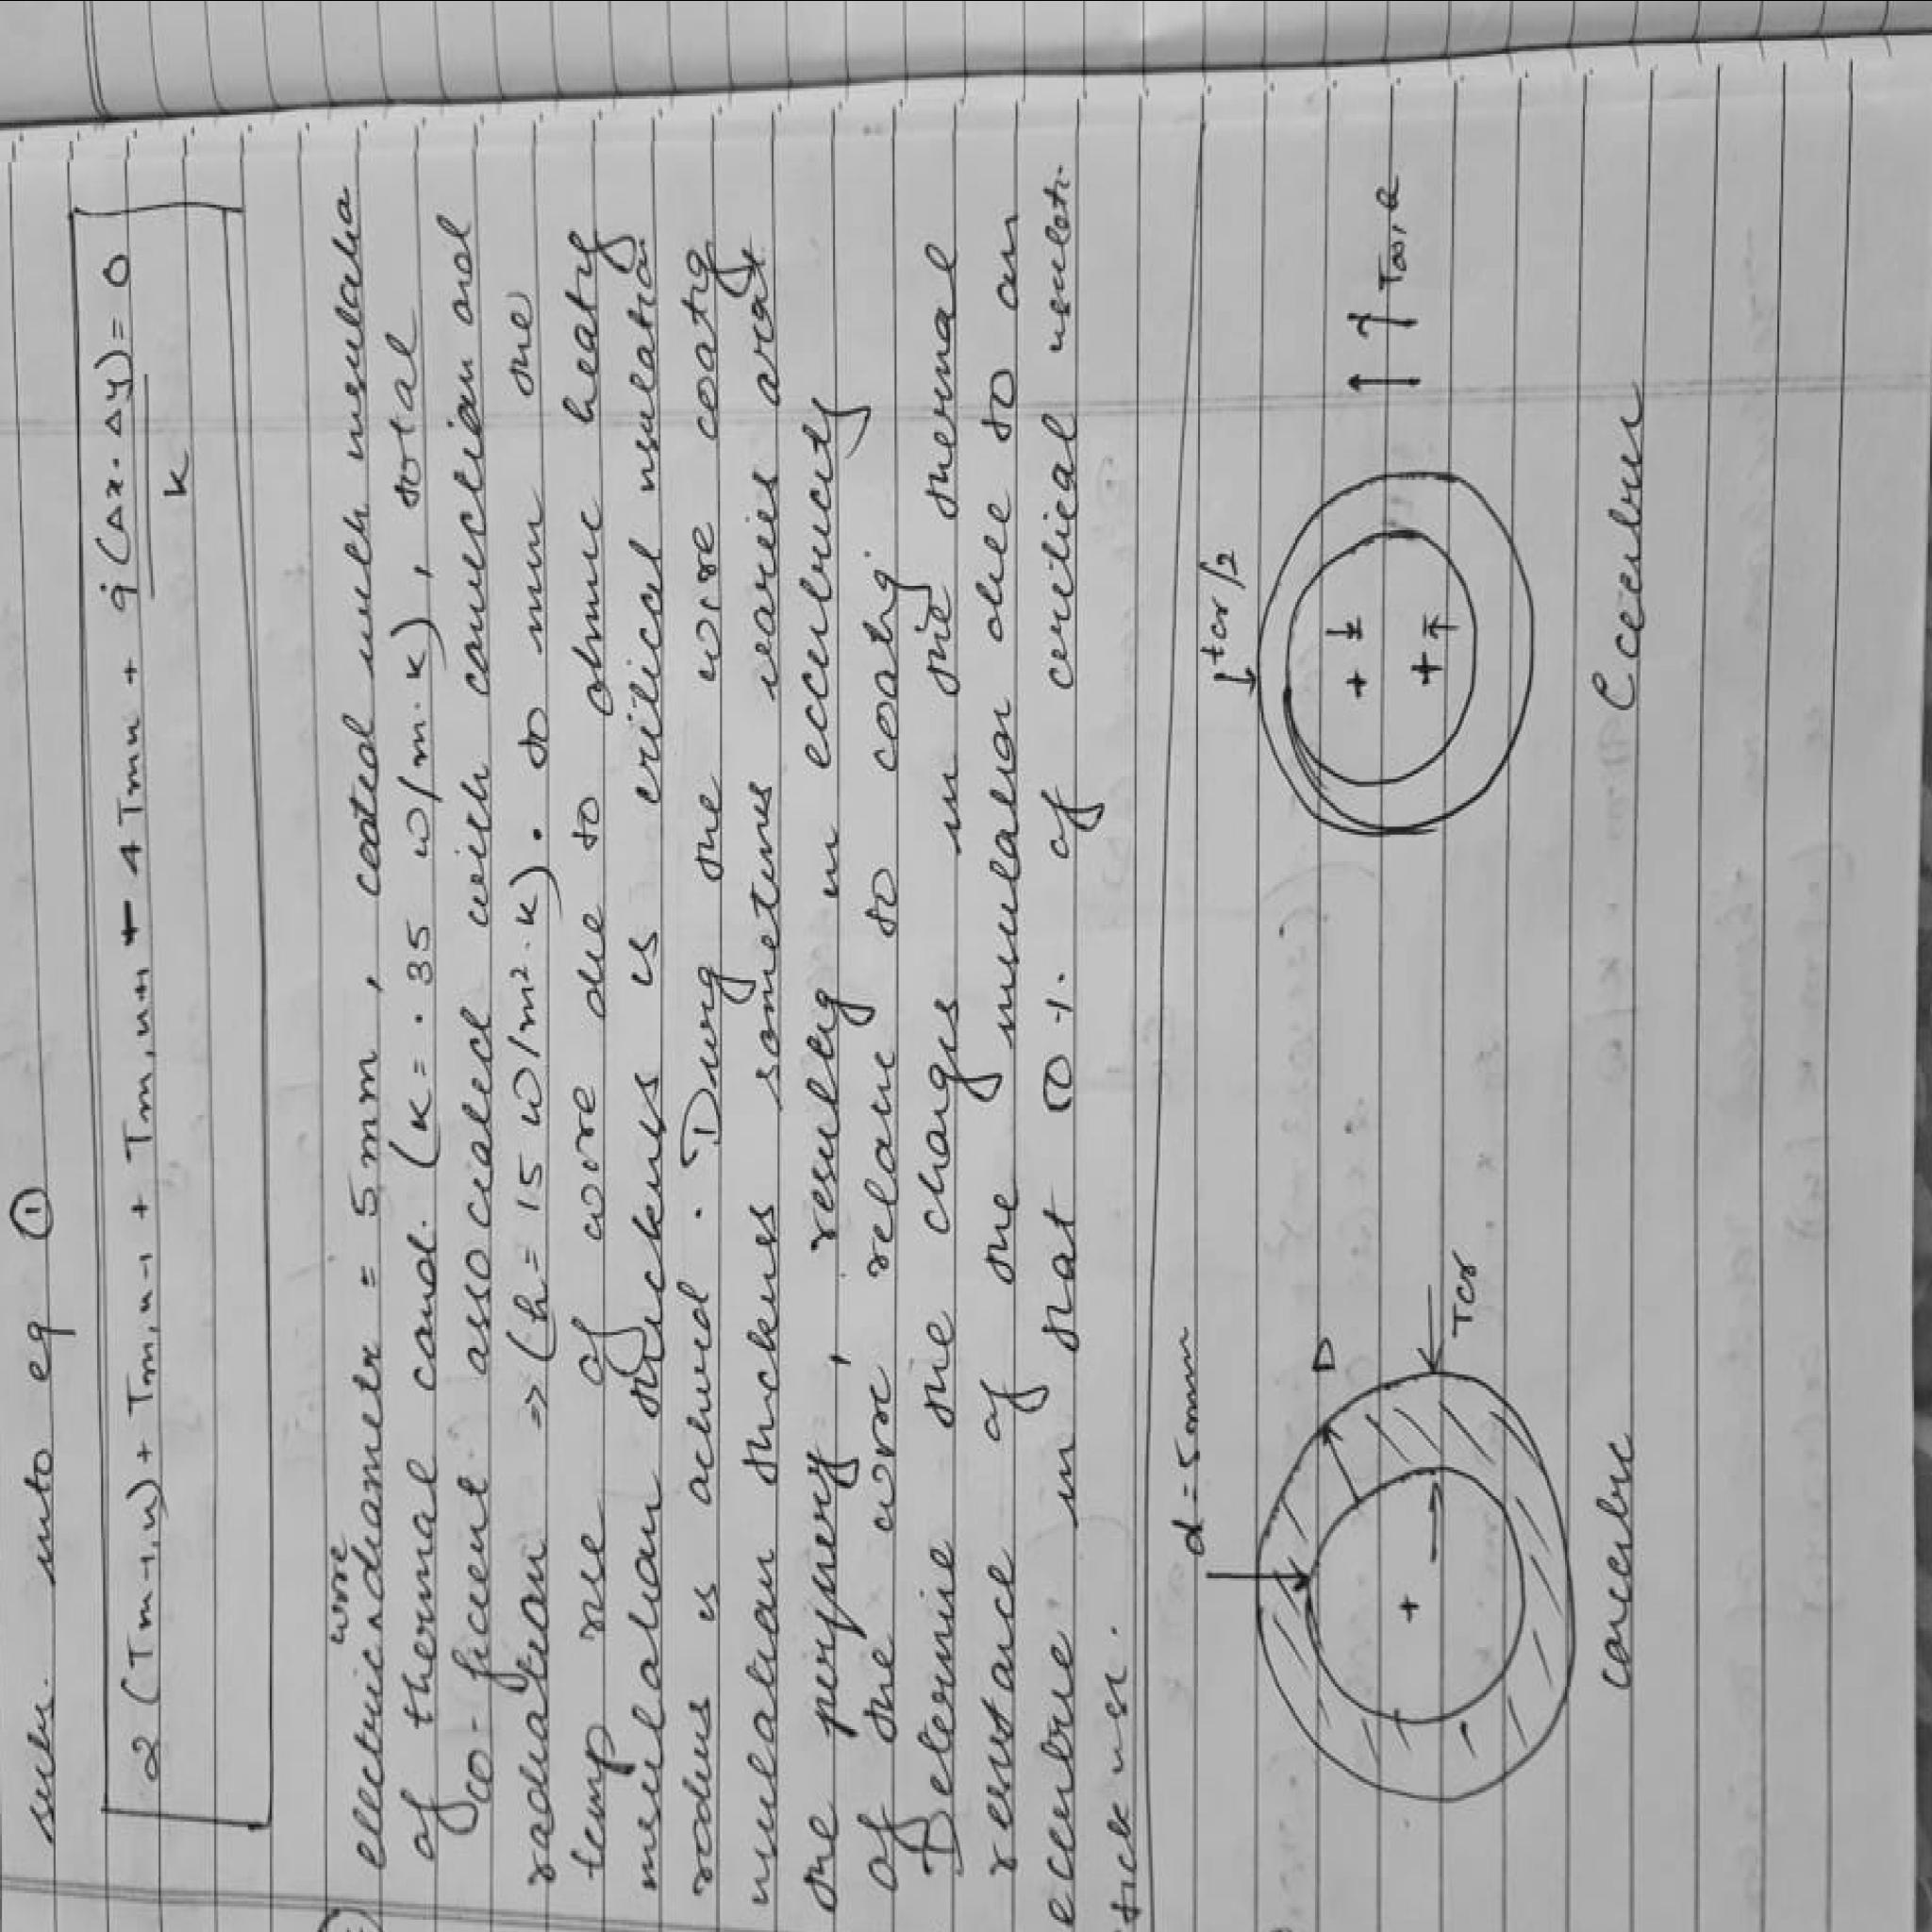 subs. into eq ①
2 (Tm-1,n) + Tm,n-1 + Tm,n+1 + 4Tmn + q̇ (Δx·Δy) = 0
k
wire
electric diameter = 5mm, coated with insulation
of thermal cond. (K = .35 w/m·K), total
co-ficient associated with convection and
radiation ⇒ (h = 15 w/m²·K). to min the
temp rise of wire due to ohmic heatig
insulation thickness is critical insulation
radius is achived. Durig the wire coatig
insulation thickness sometimes varies arou
the periphery, resultig in eccentricity
of the wire relative to coatig.
Determine the changes in the thermal
resistance of the insulation due to an
eccentric in that 50% of critical insulati
thickness.
d = 5mm
D
Tcr
concentric
tcr/2
T∞, h
Eccentric